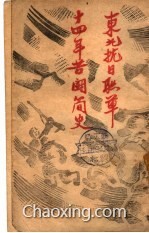 東北抗日聯軍
十四年苦鬪简史
Chaoxing.com